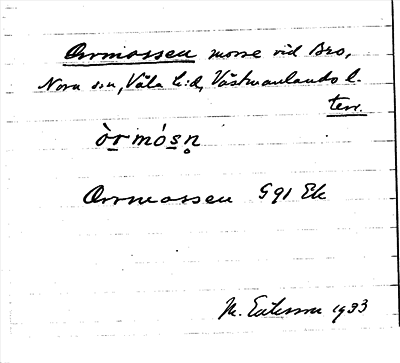 Orrmossen mosse vid Bro,
Nora s:n, Våla h:d, Västmanlands l.
terr.
òr mó s n̥
Orrmossen G 91 Ek
M. Eriksson 1933